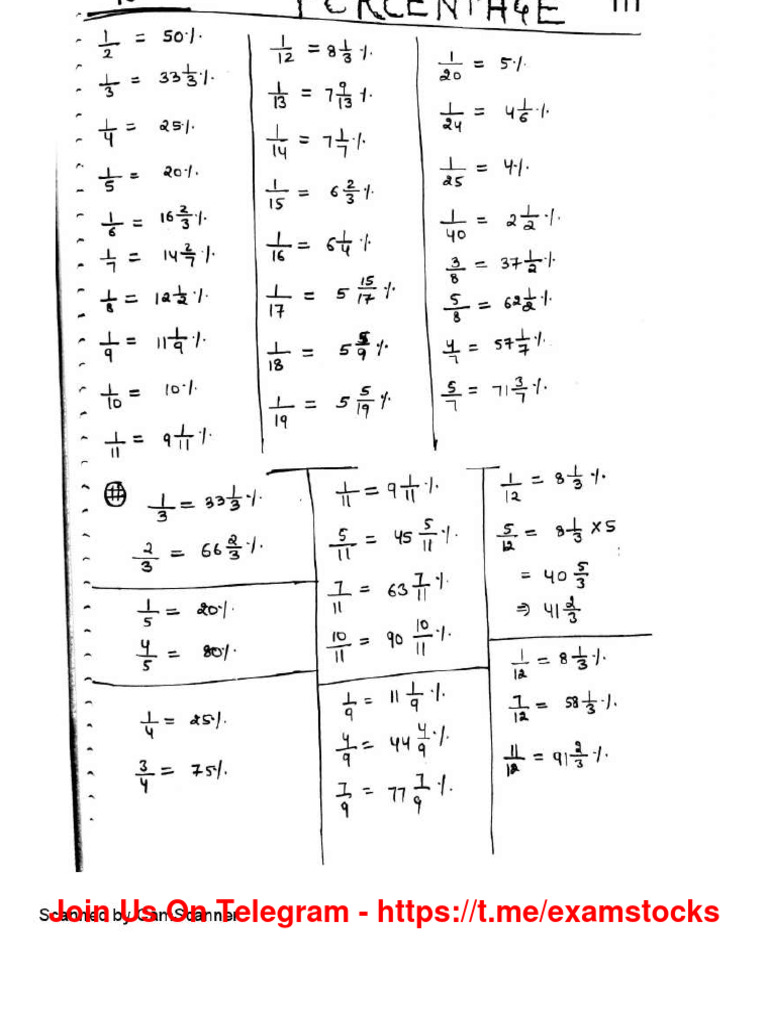 PERCENTAGE
1/2 = 50%
1/3 = 33 1/3%
1/4 = 25%
1/5 = 20%
1/6 = 16 2/3%
1/7 = 14 2/7%
1/8 = 12 1/2%
1/9 = 11 1/9%
1/10 = 10%
1/11 = 9 1/11%
1/12 = 8 1/3%
1/13 = 7 9/13%
1/14 = 7 1/7%
1/15 = 6 2/3%
1/16 = 6 1/4%
1/17 = 5 15/17%
1/18 = 5 5/9%
1/19 = 5 5/19%
1/20 = 5%
1/24 = 4 1/6%
1/25 = 4%
1/40 = 2 1/2%
3/8 = 37 1/2%
5/8 = 62 1/2%
4/7 = 57 1/7%
5/7 = 71 3/7%
#
1/3 = 33 1/3%
2/3 = 66 2/3%
1/5 = 20%
4/5 = 80%
1/4 = 25%
3/4 = 75%
1/11 = 9 1/11%
5/11 = 45 5/11%
7/11 = 63 7/11%
10/11 = 90 10/11%
1/9 = 11 1/9%
4/9 = 44 4/9%
7/9 = 77 7/9%
1/12 = 8 1/3%
5/12 = 8 1/3 × 5
= 40 5/3
⇒ 41 2/3
1/12 = 8 1/3%
7/12 = 58 1/3%
11/12 = 91 2/3%
Scanned by CamScanner
Join Us On Telegram - https://t.me/examstocks